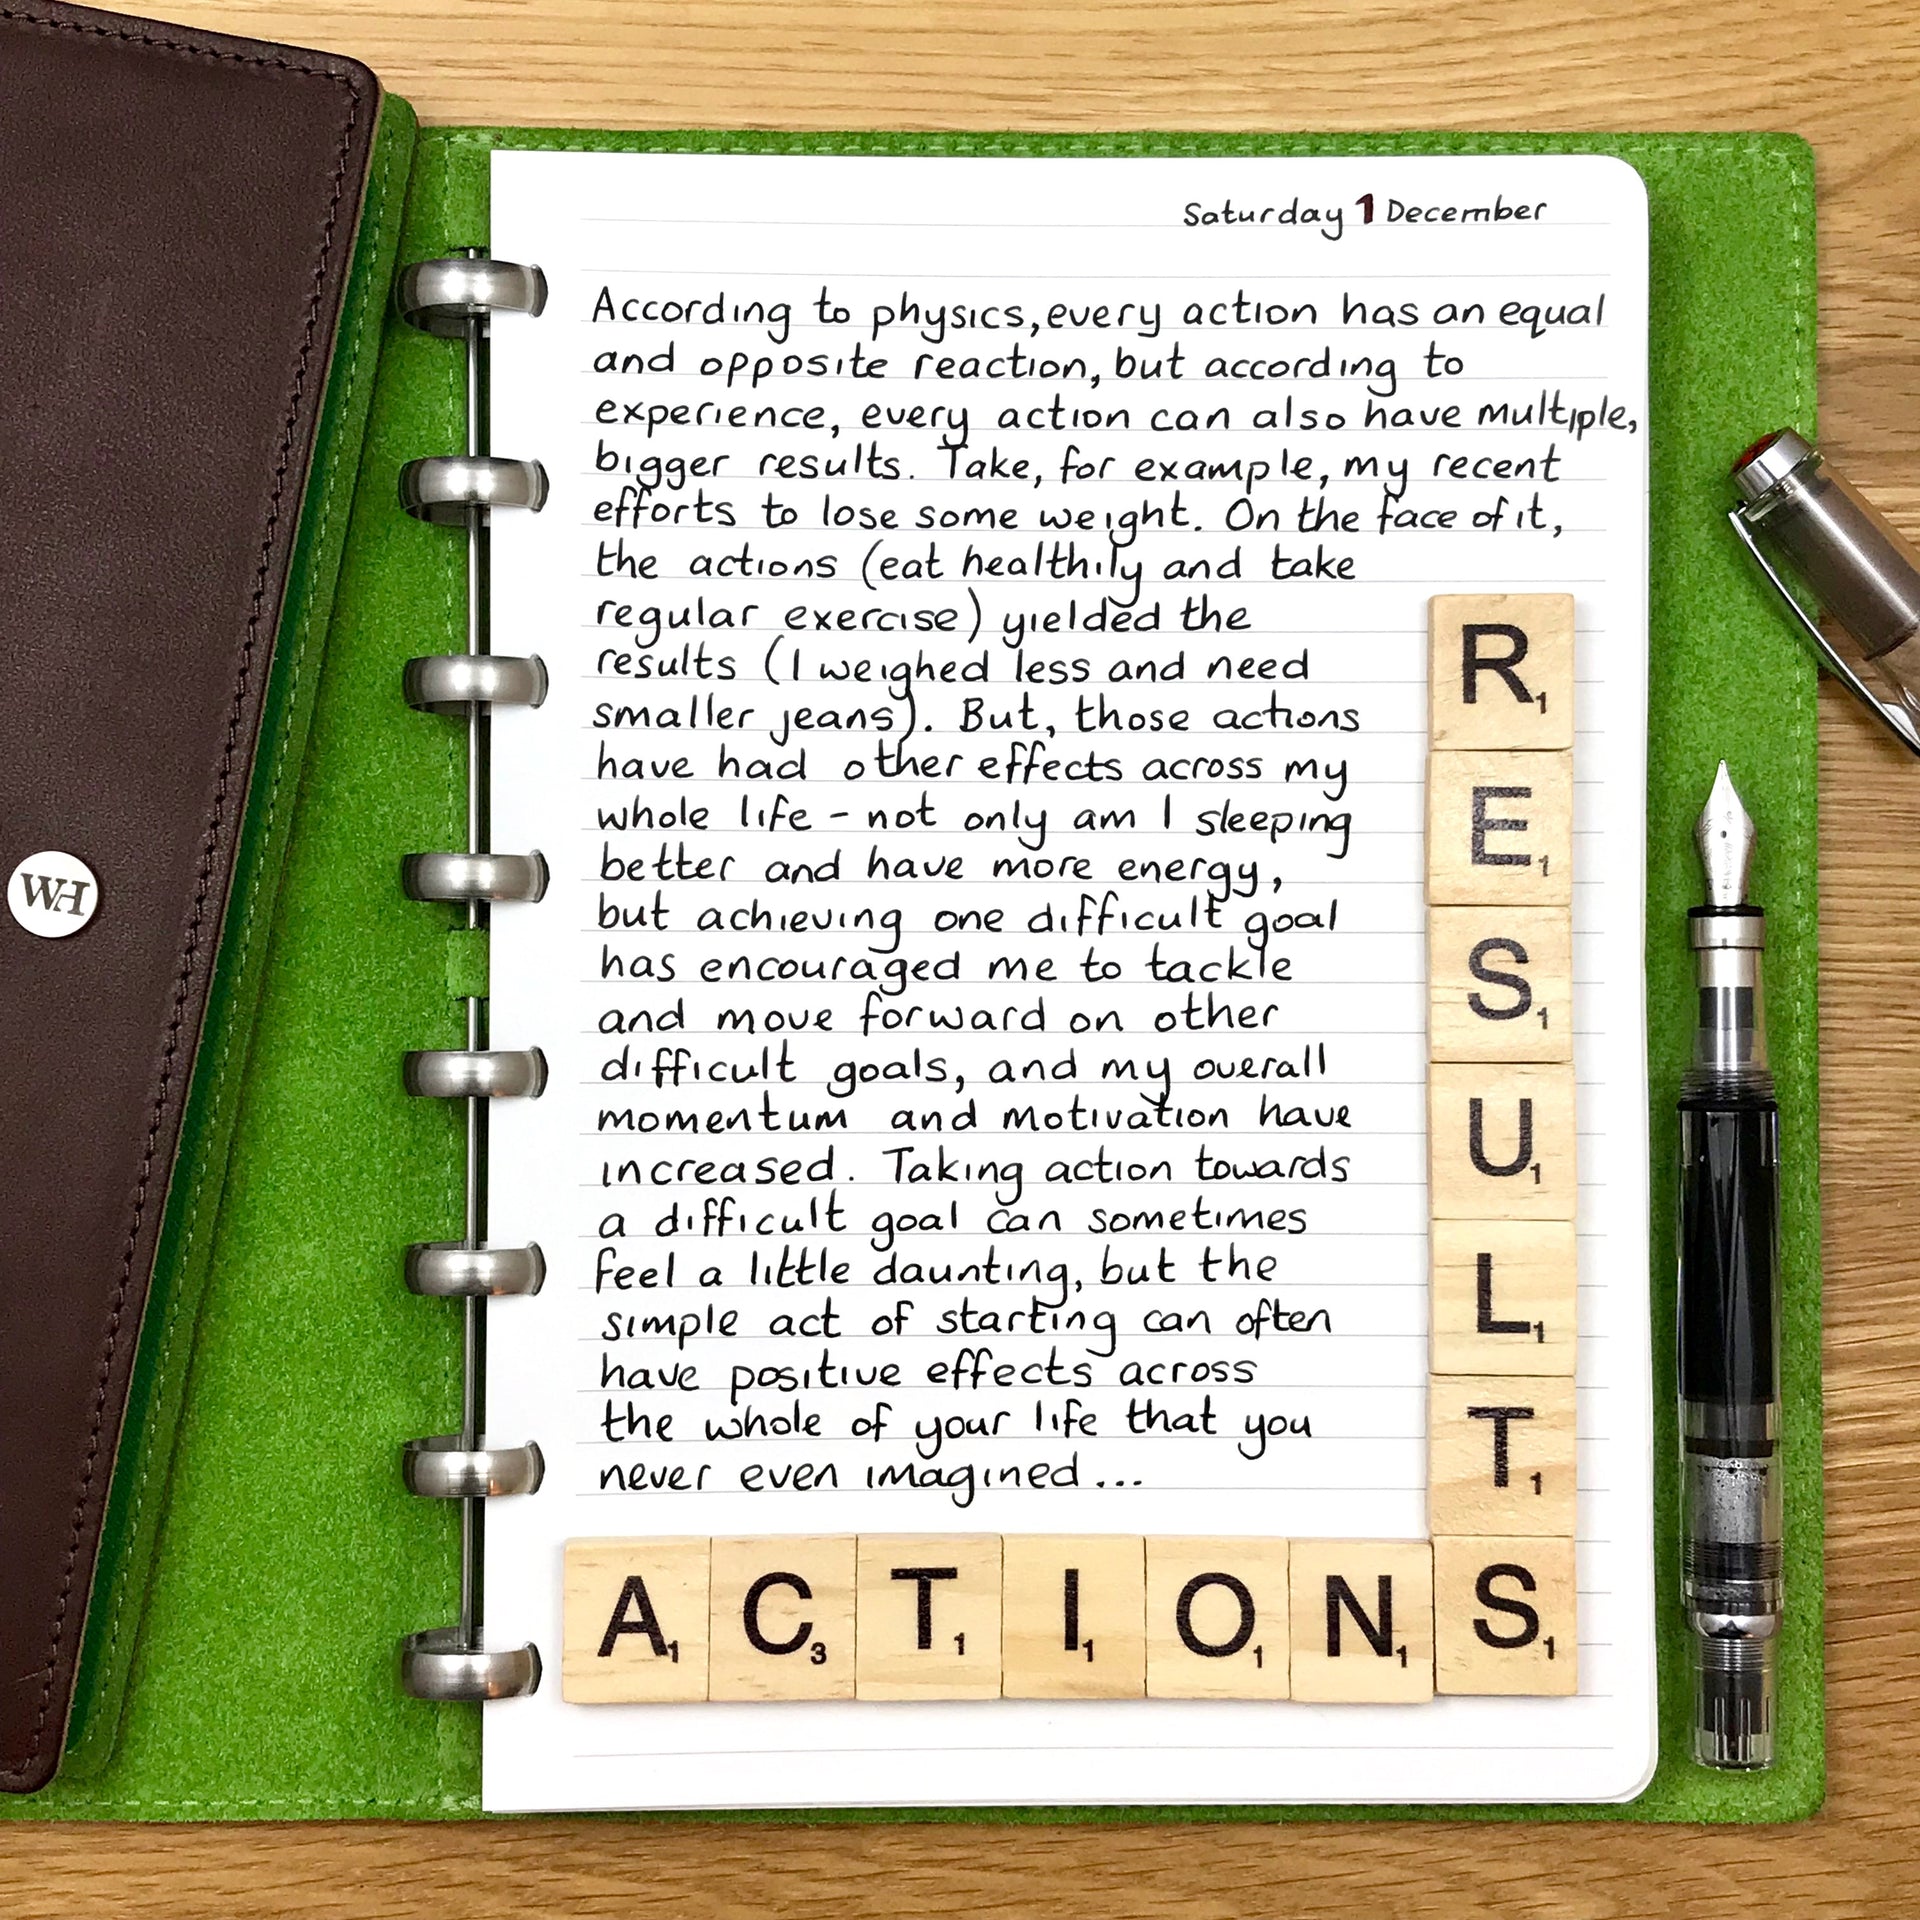 Saturday 1 December
According to physics, every action has an equal
and opposite reaction, but according to
experience, every action can also have multiple,
bigger results. Take, for example, my recent
efforts to lose some weight. On the face of it,
the actions (eat healthily and take
regular exercise) yielded the
results (I weighed less and need
smaller jeans). But, those actions
have had other effects across my
whole life - not only am I sleeping
better and have more energy,
but achieving one difficult goal
has encouraged me to tackle
and move forward on other
difficult goals, and my overall
momentum and motivation have
increased. Taking action towards
a difficult goal can sometimes
feel a little daunting, but the
simple act of starting can often
have positive effects across
the whole of your life that you
never even imagined...
R1
E1
S1
U1
L1
T1
A1 C3 T1 I1 O1 N1 S1
WH